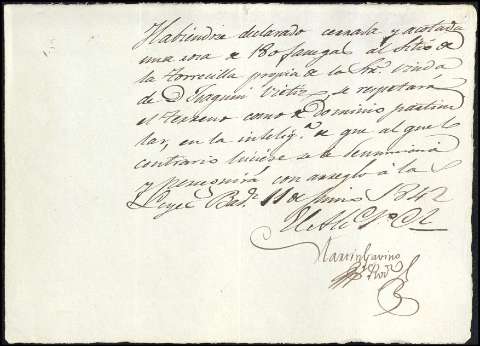 Habiendose declarado cerrada y acotada
una cora de 180 fanegas al Sitio de
la Torrecilla propia de la Sra. Viuda
de D. Joaquin se respetará
el terreno como de Dominio particu
lar, en la intelig.a de que al que lo
contrario hiciese se le denunciará
y perseguirá con arreglo á la
Leyes 11 de Junio 1842
El Alc
Martin Gavino
Rod